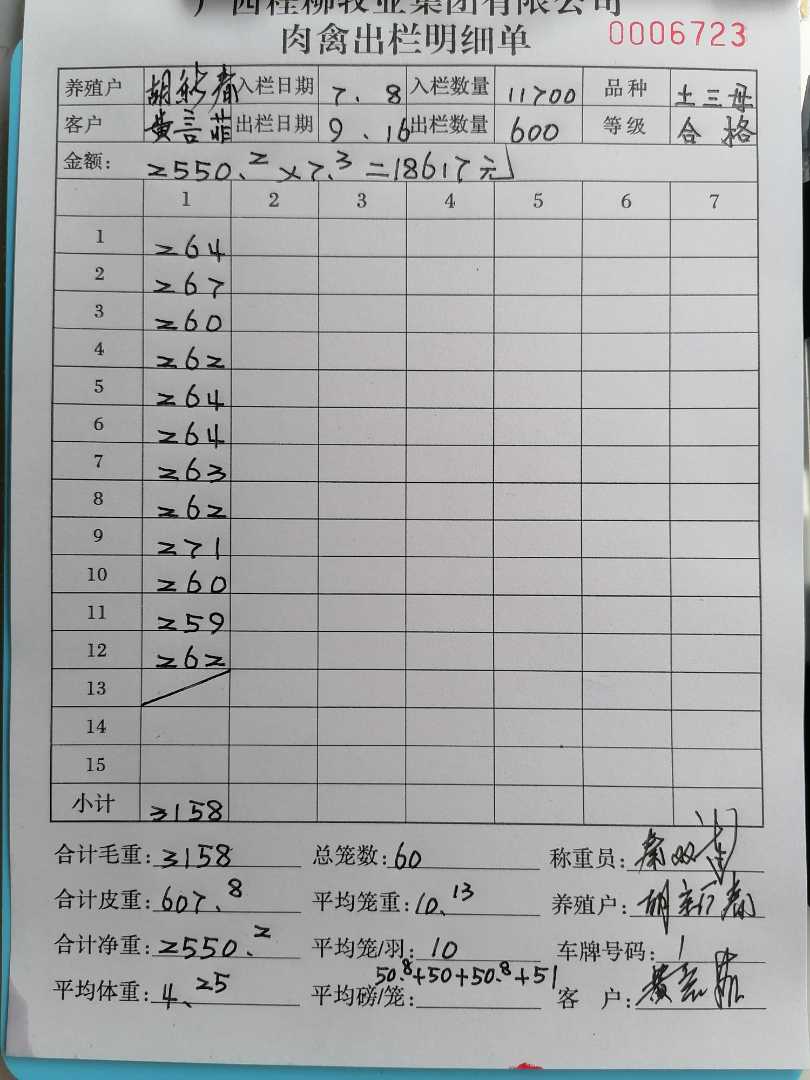 广西桂柳牧业集团有限公司
肉禽出栏明细单 0006723
养殖户 胡新春 入栏日期 7.8 入栏数量 11700 品种 土三母
客户 黄言菲 出栏日期 9.16 出栏数量 600 等级 合格
金额: 2550.2×7.3=18617元
1 2 3 4 5 6 7
1 264
2 267
3 260
4 262
5 264
6 264
7 263
8 262
9 271
10 260
11 259
12 262
13
14
15
小计 3158
合计毛重: 3158 总笼数: 60 称重员:
合计皮重: 607.8 平均笼重: 10.13 养殖户: 胡新春
合计净重: 2550.2 平均笼/羽: 10 车牌号码: 1
平均体重: 4.25 平均磅/笼: 50.8+50+50.8+51 客 户: